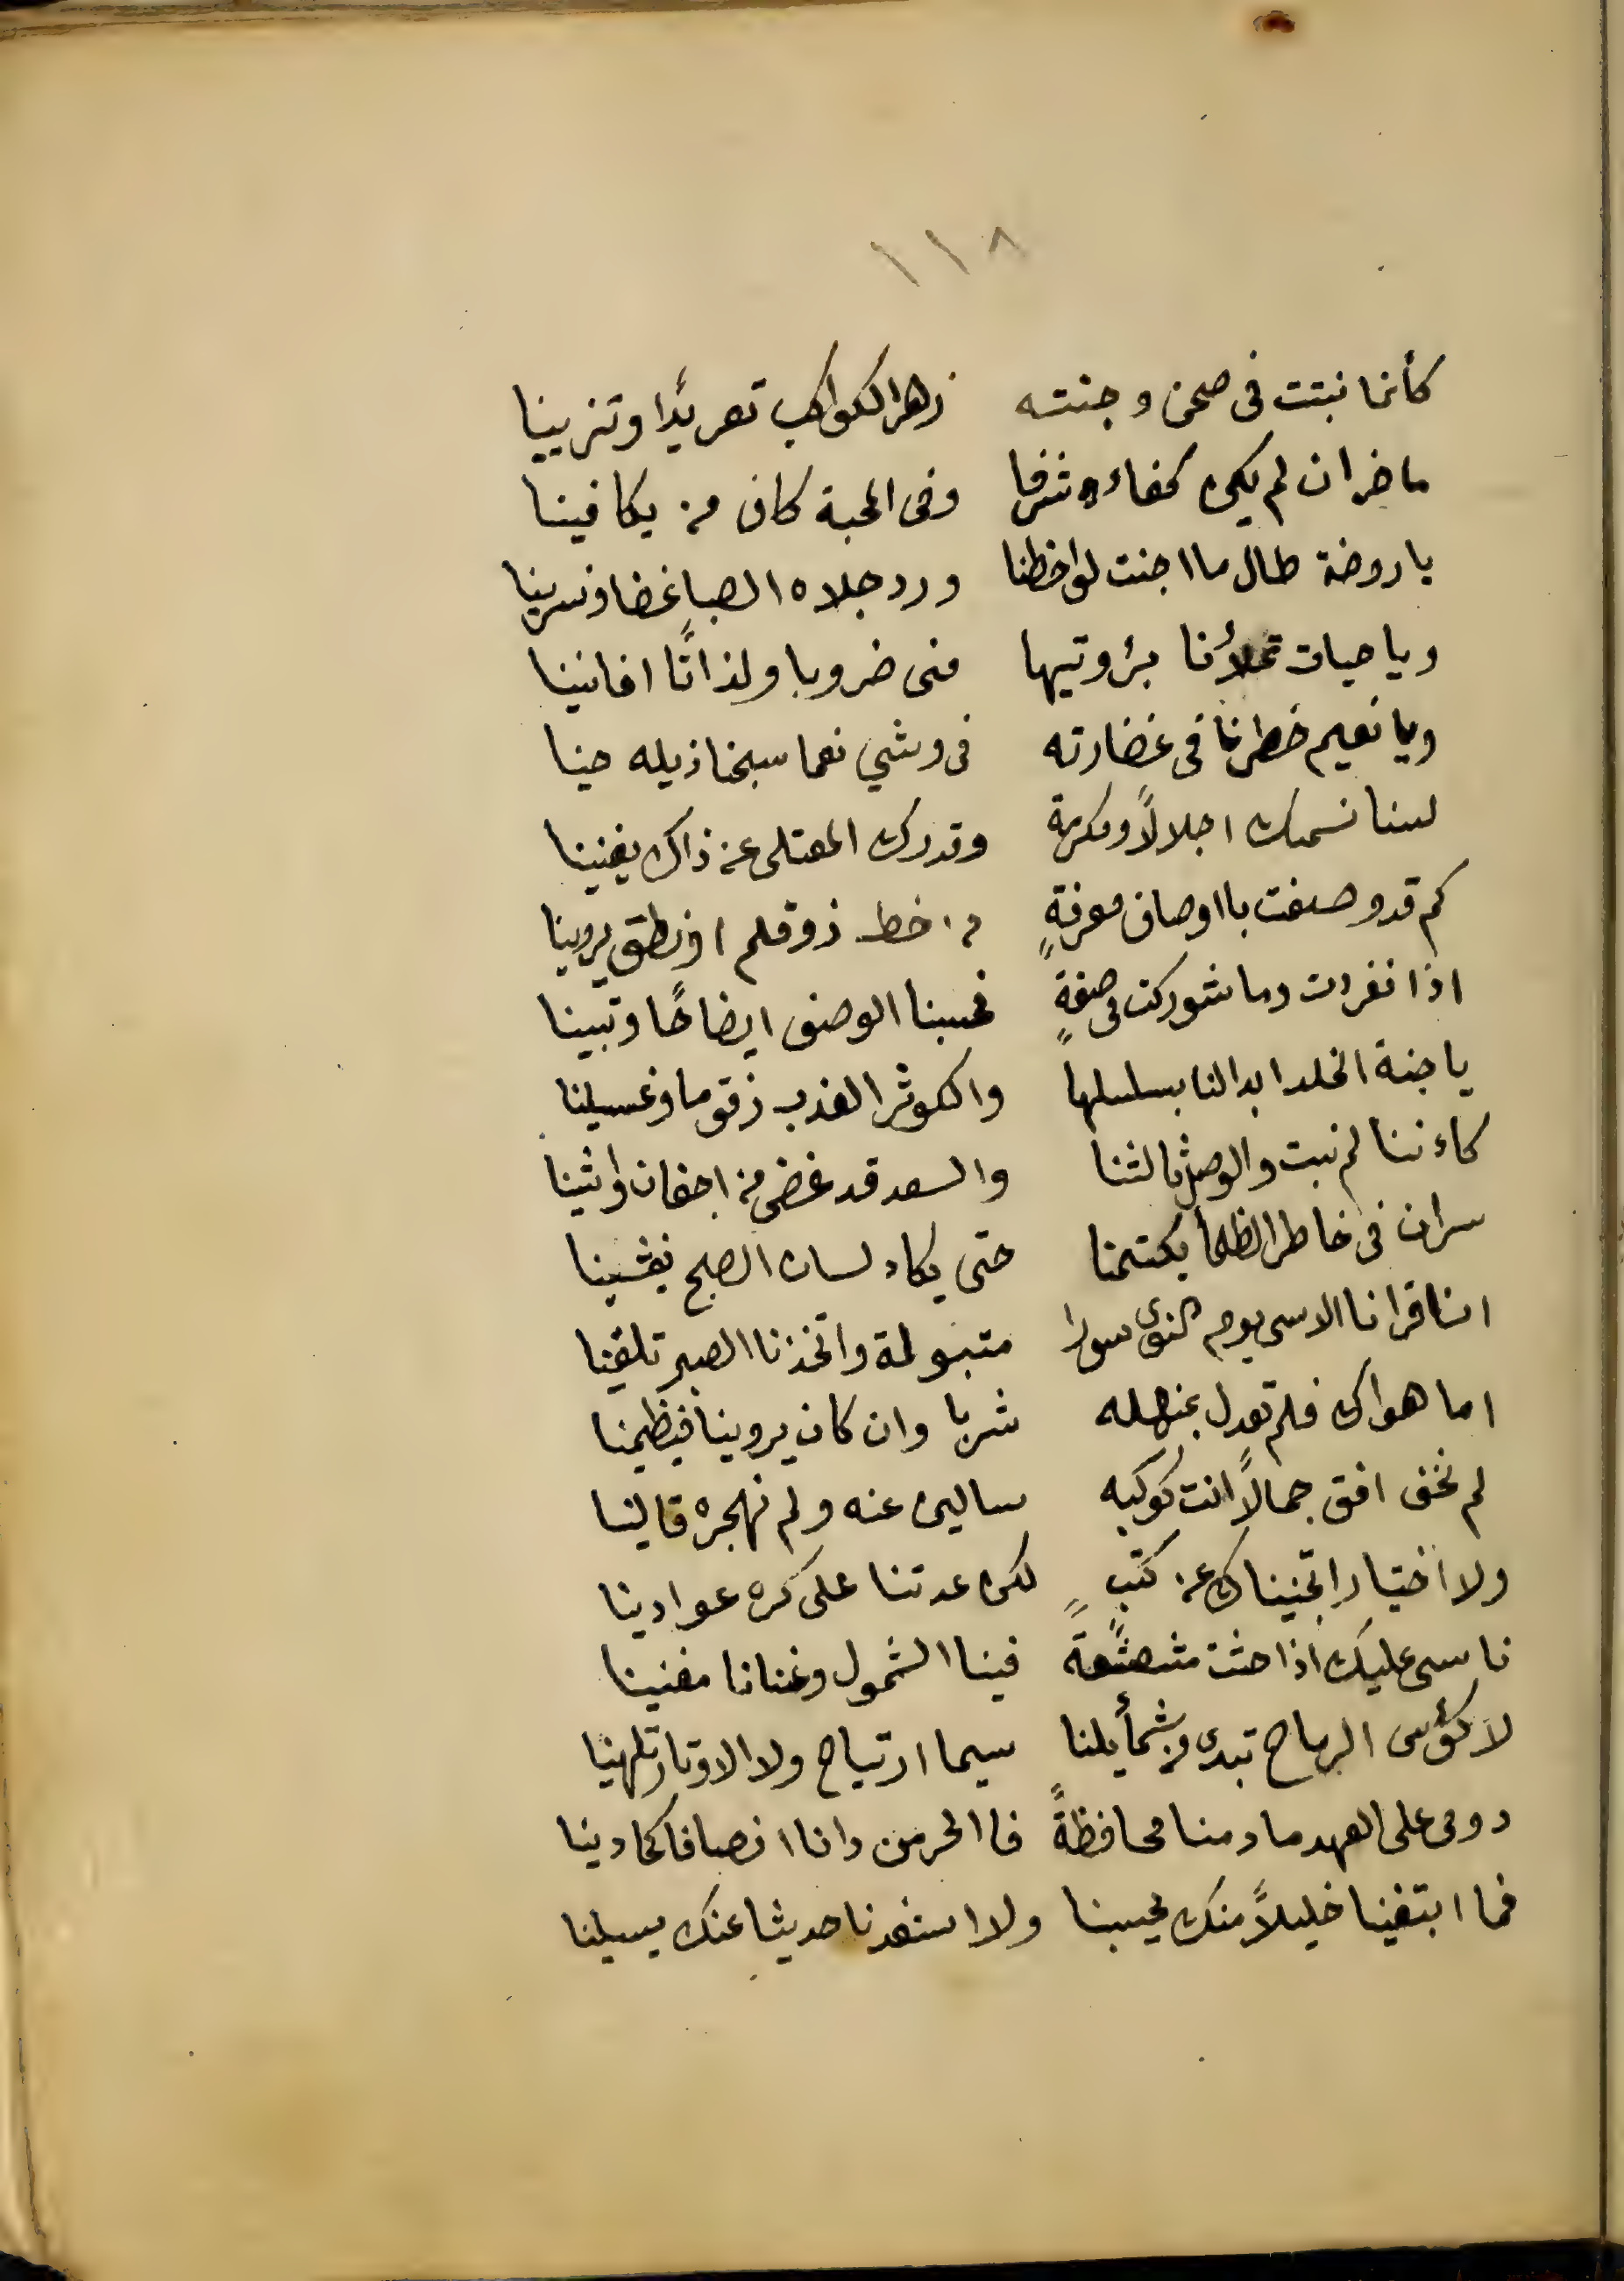 ١١٨
كأنما نبتت فى صحن وجنته زهر الكواكب تعريدًا وتزيينا
ماضر ان لم يكن كفاءه شرفا وفى المحبة كاف من يكافينا
ياروضة طال ما اجنت لواحظنا ورد جلاه الصبا غضا ونسرينا
وياحيات تملأنا بزوتيها منى ضروبا ولذاتًا افانينا
ويا نعيم خطرنا فى غضارته فى وشي نعما سبحنا ذيله حينا
لسنا نسميك اجلالًا ومكرمة وقدرك المعتلى عن ذاك يغنينا
كم قد وصفت با اوصاف معرفةٍ من خط ذو قلم او نطق يروينا
اذا نفردت وما شوركت فى صفةٍ فحسبنا الوصف ايضاحًا وتبينا
يا جنة الخلد ابدالنا بسلسلها والكوثر العذب زقوما وغسيلنا
كاءننا لم نبت والوصل ثالثنا والسعد قد غض من اجفان واشينا
سران فى خاطر الظلما يكتمنا حتى يكاد لسان الصبح يفشينا
انا قرانا الاسى يوم النوى سورا متبولة واتخذنا الصبر تلقينا
اما هواك فلم تعدل بمنهله شربا وان كان يروينا فيظمينا
لم نخف افق جمالًا انت كوكبه سالين عنه ولم نهجره قالينا
ولا اختيارا تجنيناك عن كثبٍ لكن عدتنا على كره عوادينا
ناسى عليك اذا حثت مشعشعةً فينا الشمول وغنانا مغنينا
لا كؤس الراح تبدى من شمأيلنا سيما ارتياح ولا الاوتار تلهينا
دومى على العهد مادمنا محافظةً فا الحر من دانا انصافا كما دينا
فما ابتغينا خليلًا منك يحسبنا ولا استفدنا حديثا عنك يسيلنا